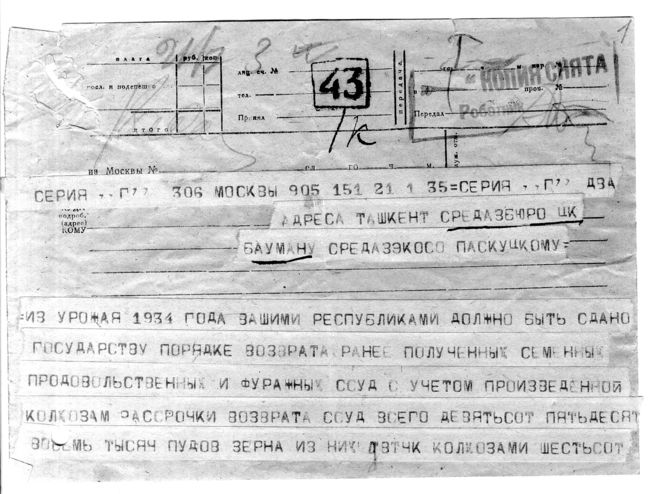 1
плата
руб. коп
43
лиц. сч. №
тел.
Принял
передача
Передал
" КОПИЯ СНЯТА
проч. №
итого
из Москвы №
СЕРИЯ ,,Г'' 306 МОСКВЫ 905 151 21 1 35=СЕРИЯ ,,Г'' ДВА
подроб.
(адрес)
КОМУ
АДРЕСА ТАШКЕНТ СРЕДАЗБЮРО ЦК
БАУМАНУ СРЕДАЗЭКОСО ПАСКУЦКОМУ=
=ИЗ УРОЖАЯ 1934 ГОДА ВАШИМИ РЕСПУБЛИКАМИ ДОЛЖНО БЫТЬ СДАНО
ГОСУДАРСТВУ ПОРЯДКЕ ВОЗВРАТА РАНЕЕ ПОЛУЧЕННЫХ СЕМЕННЫХ
ПРОДОВОЛЬСТВЕННЫХ И ФУРАЖНЫХ ССУД С УЧЕТОМ ПРОИЗВЕДЕННОЙ
КОЛХОЗАМ РАССРОЧКИ ВОЗВРАТА ССУД ВСЕГО ДЕВЯТЬСОТ ПЯТЬДЕСЯТ
ВОСЕМЬ ТЫСЯЧ ПУДОВ ЗЕРНА ИЗ НИХ ДВТЧК КОЛХОЗАМИ ШЕСТЬСОТ